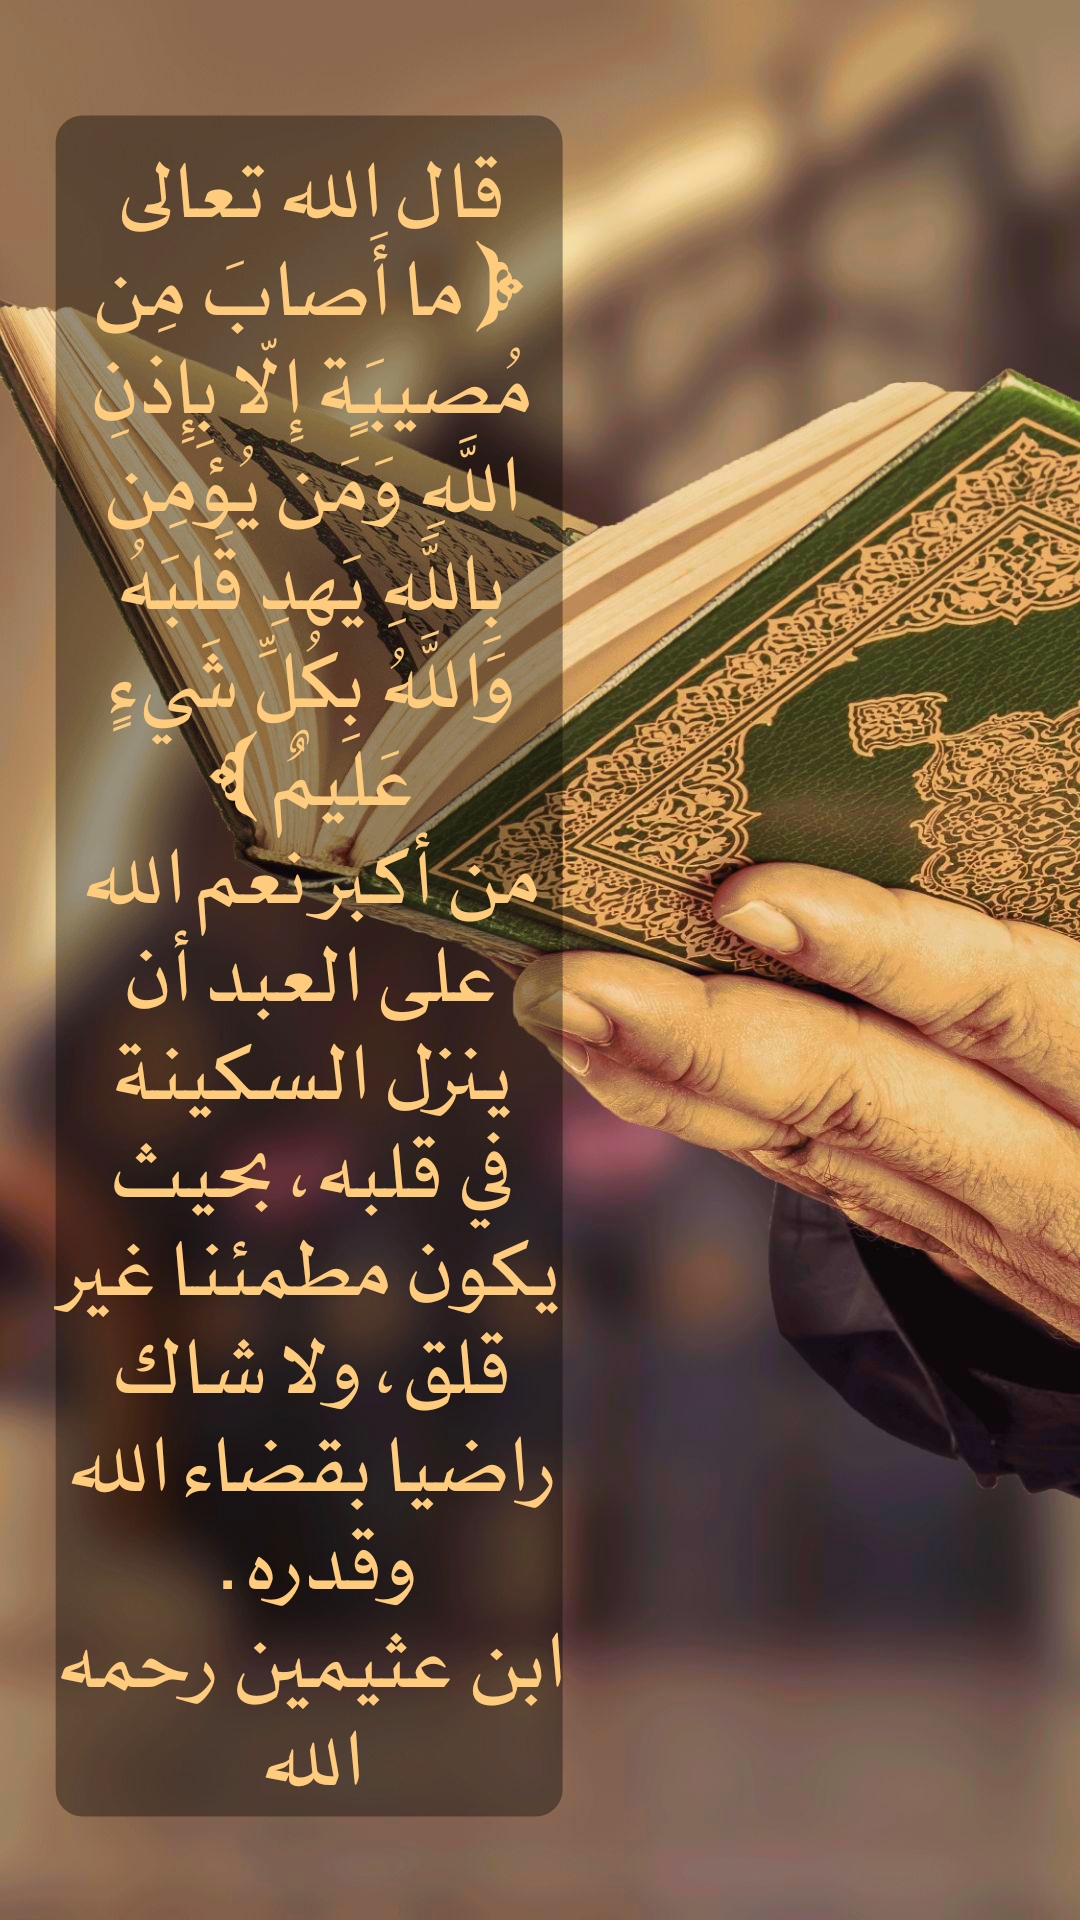 قال الله تعالى
﴿ما أَصابَ مِن
مُصيبَةٍ إِلّا بِإِذنِ
اللَّهِ وَمَن يُؤمِن
بِاللَّهِ يَهدِ قَلبَهُ
وَاللَّهُ بِكُلِّ شَيءٍ
عَليمٌ﴾
من أكبر نعم الله
على العبد أن
ينزل السكينة
في قلبه، بحيث
يكون مطمئنا غير
قلق، ولا شاك
راضيا بقضاء الله
وقدره.
ابن عثيمين رحمه
الله